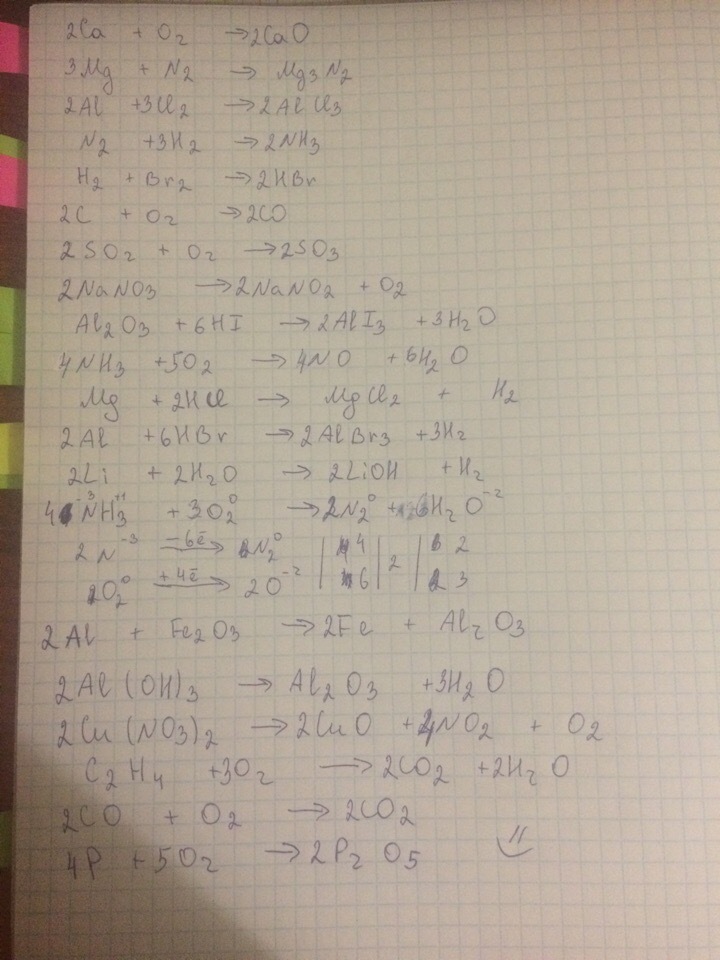 2Ca + O2 → 2CaO
3Mg + N2 → Mg3N2
2Al + 3Cl2 → 2AlCl3
N2 + 3H2 → 2NH3
H2 + Br2 → 2HBr
2C + O2 → 2CO
2SO2 + O2 → 2SO3
2NaNO3 → 2NaNO2 + O2
Al2O3 + 6HI → 2AlI3 + 3H2O
4NH3 + 5O2 → 4NO + 6H2O
Mg + 2HCl → MgCl2 + H2
2Al + 6HBr → 2AlBr3 + 3H2
2Li + 2H2O → 2LiOH + H2
4N⁻³H⁺¹3 + 3O2⁰ → 2N2⁰ + 6H2O⁻²
2N⁻³ −6ē → N2⁰ | 4 | 2 | 2
O2⁰ +4ē → 2O⁻² | 6 | | 3
2Al + Fe2O3 → 2Fe + Al2O3
2Al(OH)3 → Al2O3 + 3H2O
2Cu(NO3)2 → 2CuO + 4NO2 + O2
C2H4 + 3O2 → 2CO2 + 2H2O
2CO + O2 → 2CO2
4P + 5O2 → 2P2O5